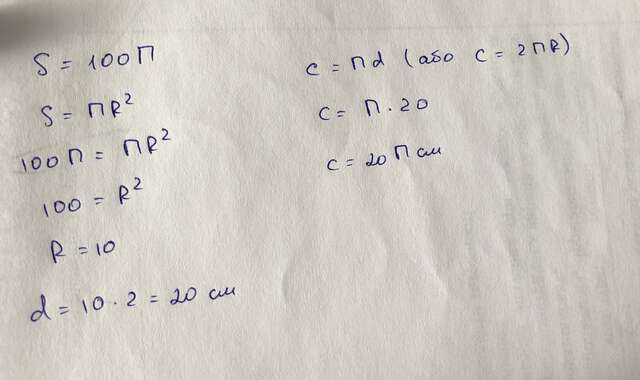 S = 100П
S = ПR²
100П = ПR²
100 = R²
R = 10
d = 10 · 2 = 20 см
c = Пd (або c = 2ПR)
c = П · 20
c = 20П см